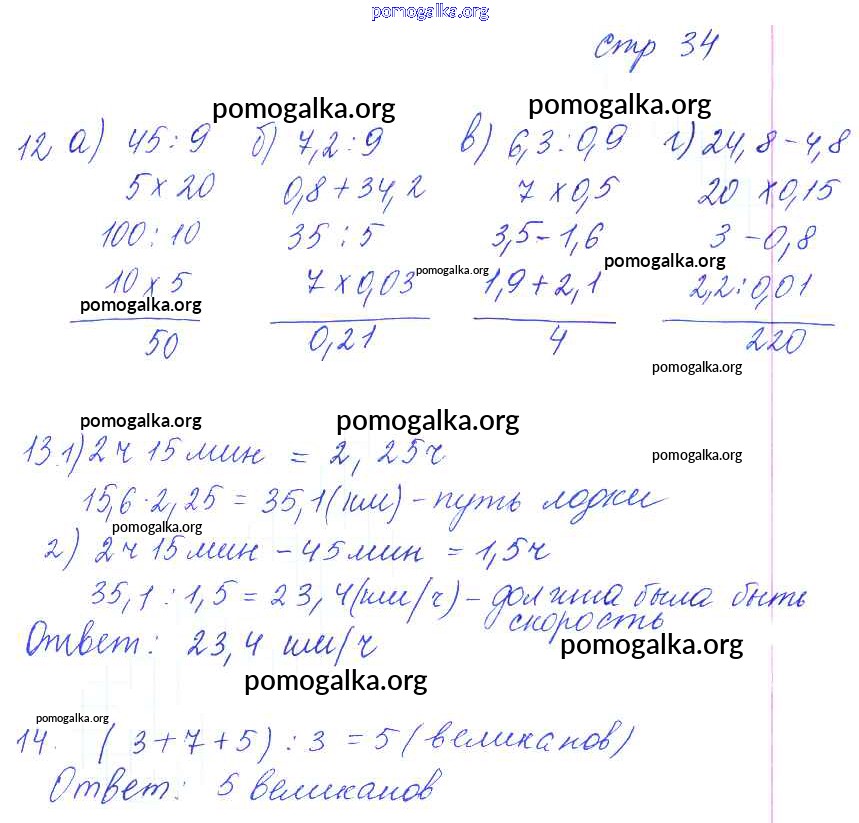 pomogalka.org
стр 34
pomogalka.org pomogalka.org
12 а) 45:9 б) 7,2:9 в) 6,3:0,9 г) 24,8-4,8
5 x 20 0,8+34,2 7 x 0,5 20 x 0,15
100:10 35:5 3,5-1,6 3-0,8
pomogalka.org pomogalka.org
10 x 5 7 x 0,03 1,9+2,1 2,2:0,01
pomogalka.org
50 0,21 4 220
pomogalka.org
pomogalka.org pomogalka.org
13.1) 2ч 15 мин = 2,25ч
pomogalka.org
15,6·2,25 = 35,1 (км) - путь лодки
pomogalka.org
2) 2ч 15 мин - 45 мин = 1,5ч
35,1:1,5 = 23,4 (км/ч) - должна была быть
скорость
Ответ: 23,4 км/ч
pomogalka.org
pomogalka.org
pomogalka.org
14. (3+7+5):3=5 (великанов)
Ответ: 5 великанов